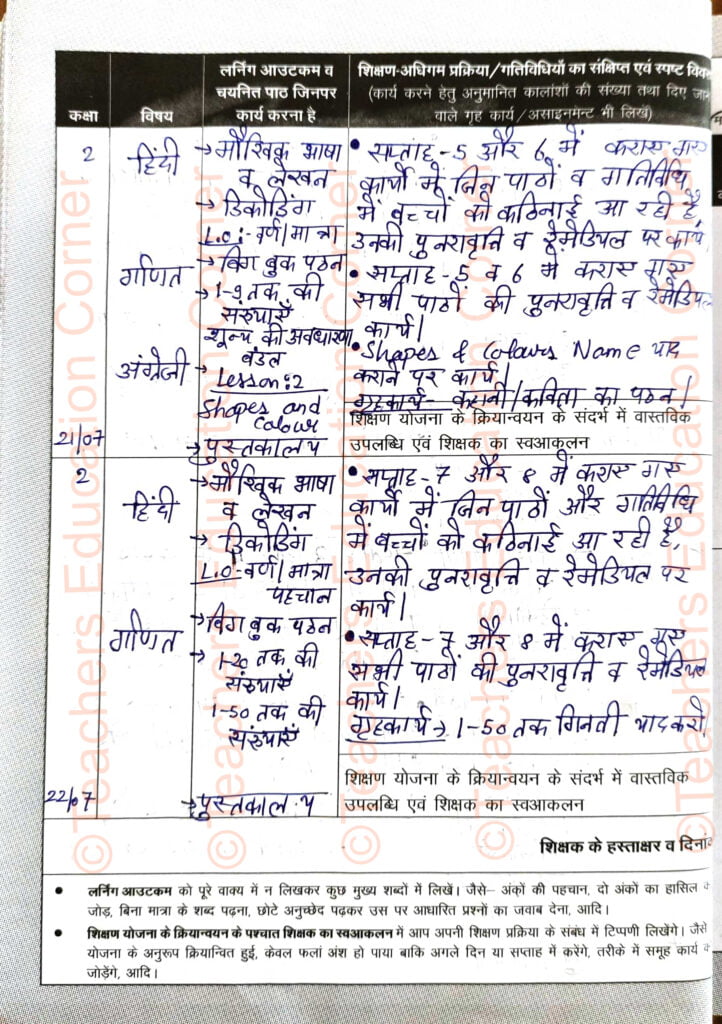 कक्षा
विषय
लर्निंग आउटकम व
चयनित पाठ जिनपर
कार्य करना है
शिक्षण-अधिगम प्रक्रिया/गतिविधियों का संक्षिप्त एवं स्पष्ट
(कार्य करने हेतु अनुमानित कालांशों की संख्या तथा दिए
वाले गृह कार्य/असाइनमेन्ट भी लिखें)
2
हिंदी
→मौखिक भाषा
व लेखन
→ डिकोडिंग
L.O:-वर्ण/मात्रा
→ बिग बुक पठन
गणित
→ 1-9 तक की
संख्याएँ
शून्य की अवधारणा
बंडल
अंग्रेजी
Lesson:2
Shapes and
Colour
21/07
→ पुस्तकालय
• सप्ताह-5 और 6 में कराए गए
कार्यो में जिन पाठों व गतिविधि
में बच्चों को कठिनाई आ रही है,
उनकी पुनरावृत्ति व रेमेडियल पर कार्य,
• सप्ताह-5 व 6 में कराए गए
सभी पाठों की पुनरावृत्ति व रेमेडियल
कार्य।
• Shapes & Colours Name याद
कराने पर कार्य।
गृहकार्य- कहानी/कविता का पठन।
शिक्षण योजना के क्रियान्वयन के संदर्भ में वास्तविक
उपलब्धि एवं शिक्षक का स्वआकलन
2
हिंदी
→मौखिक भाषा
व लेखन
→ डिकोडिंग
L.O:-वर्ण/मात्रा
पहचान
→बिग बुक पठन
गणित
→ 1-20 तक की
संख्याएँ
1-50 तक की
संख्याएँ
22/07
→पुस्तकालय
• सप्ताह-7 और 8 में कराए गए
कार्यो में जिन पाठों और गतिविधि
में बच्चों को कठिनाई आ रही है,
उनकी पुनरावृत्ति व रेमेडियल पर
कार्य।
• सप्ताह-7 और 8 में कराए गए
सभी पाठों की पुनरावृत्ति व रेमेडियल
कार्य।
गृहकार्य → 1-50 तक गिनती याद करो,
शिक्षण योजना के क्रियान्वयन के संदर्भ में वास्तविक
उपलब्धि एवं शिक्षक का स्वआकलन
शिक्षक के हस्ताक्षर व दिनांक
• लर्निंग आउटकम को पूरे वाक्य में न लिखकर कुछ मुख्य शब्दों में लिखें। जैसे– अंकों की पहचान, दो अंकों का हासिल
जोड़, बिना मात्रा के शब्द पढ़ना, छोटे अनुच्छेद पढ़कर उस पर आधारित प्रश्नों का जवाब देना, आदि।
• शिक्षण योजना के क्रियान्वयन के पश्चात शिक्षक का स्वआकलन में आप अपनी शिक्षण प्रक्रिया के संबंध में टिप्पणी लिखेंगे। जैसे
योजना के अनुरूप क्रियान्वित हुई, केवल फलां अंश हो पाया बाकि अगले दिन या सप्ताह में करेंगे, तरीके में समूह कार्य
जोड़ेंगे, आदि।
© Teachers Education Corner
© Teachers Education Corner
© Teachers Education Corner
© Teachers Education Corner